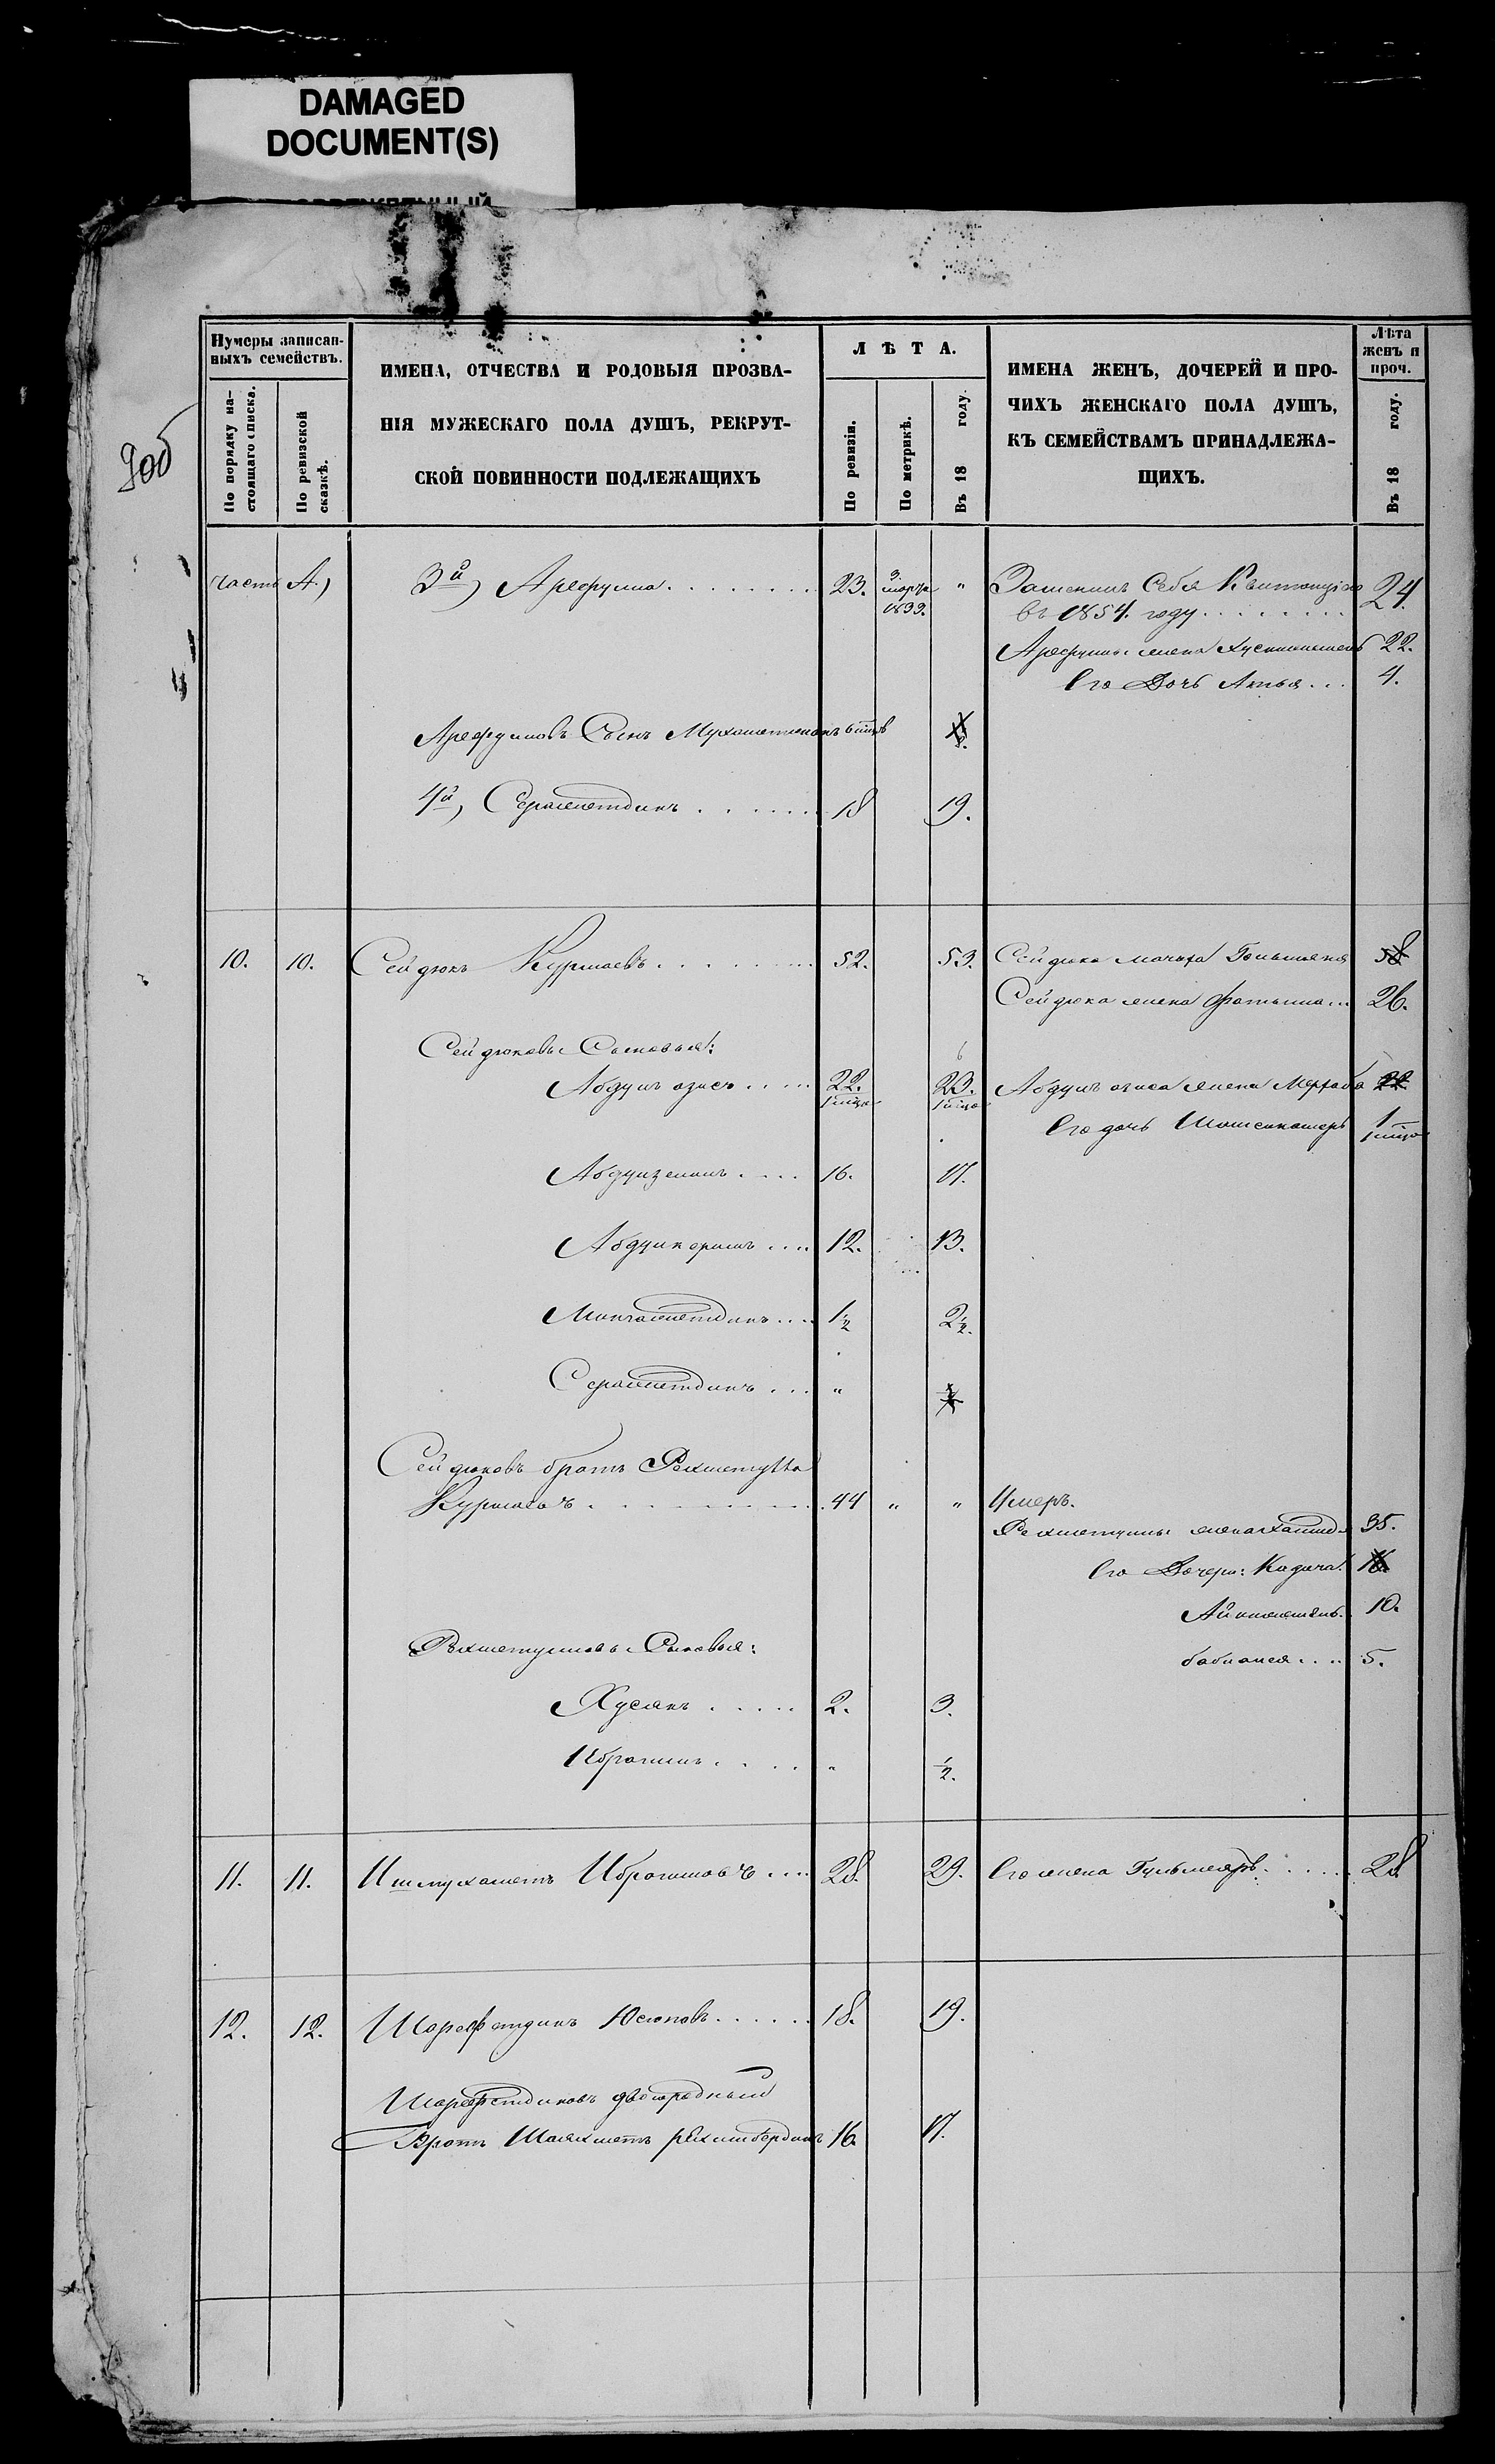 DAMAGED
DOCUMENT(S)
Нумеры записан-
ныхъ семействъ.
По порядку на-
стоящаго списка.
По ревизской
сказкѣ.
ИМЕНА, ОТЧЕСТВА И РОДОВЫЯ ПРОЗВА-
НІЯ МУЖЕСКАГО ПОЛА ДУШЪ, РЕКРУТ-
СКОЙ ПОВИННОСТИ ПОДЛЕЖАЩИХЪ
ЛѢТА.
По ревизіи.
По метрикѣ.
Въ 18 году.
ИМЕНА ЖЕНЪ, ДОЧЕРЕЙ И ПРО-
ЧИХЪ ЖЕНСКАГО ПОЛА ДУШЪ,
КЪ СЕМЕЙСТВАМЪ ПРИНАДЛЕЖА-
ЩИХЪ.
Лѣта
женъ и
проч.
Въ 18 году.
часть А.) 3й) Арефулла 23. 3 марта 1833. " Замѣнилъ Себя Квитанціею
въ 1854. году 24.
Арефуллы жена 22.
Его Дочь 4.
Арефулловъ Сынъ
4й) Серазетдинъ 18 19.
10. 10. Сейдюкъ Курмаевъ 52. 53. Сейдюка мачиха 58
Сейдюка жена Фатыма 26.
Сейдюковы Сыновья:
Абдулъ азисъ 22. 23. Абдулъ азиса жена
Его дочь 1
Абдулзелиль 16. 17.
Абдулкеримъ 12. 13.
Мингазетдинъ 1/2 2 1/2.
Серазетдинъ "
Сейдюковъ братъ Рахметулла
Курмаевъ 44 " " Умеръ.
Рахметуллы жена 35.
Его Дочери: Кадича
10.
Рахметулловы Сыновья:
5.
Хусаинъ 2. 3.
Ибрагимъ " 1/2.
11. 11. Ишмухаметъ Ибрагимовъ 28. 29. Его жена 28
12. 12. Шарафетдинъ Юсюповъ 18. 19.
Шарафетдиновъ двоюродный
Братъ Шаяхметъ Рахимбердинъ 16. 17.